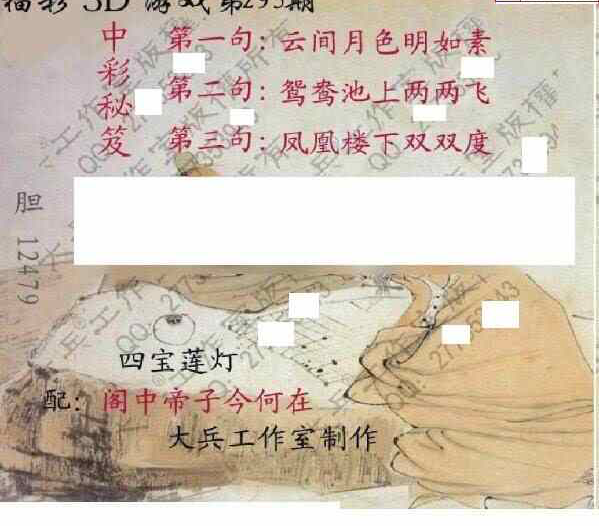 福彩3D游戏第293期
中彩秘笈
第一句：云间月色明如素
第二句：鸳鸯池上两两飞
第三句：凤凰楼下双双度
胆 12479
四宝莲灯
配：阁中帝子今何在
大兵工作室制作